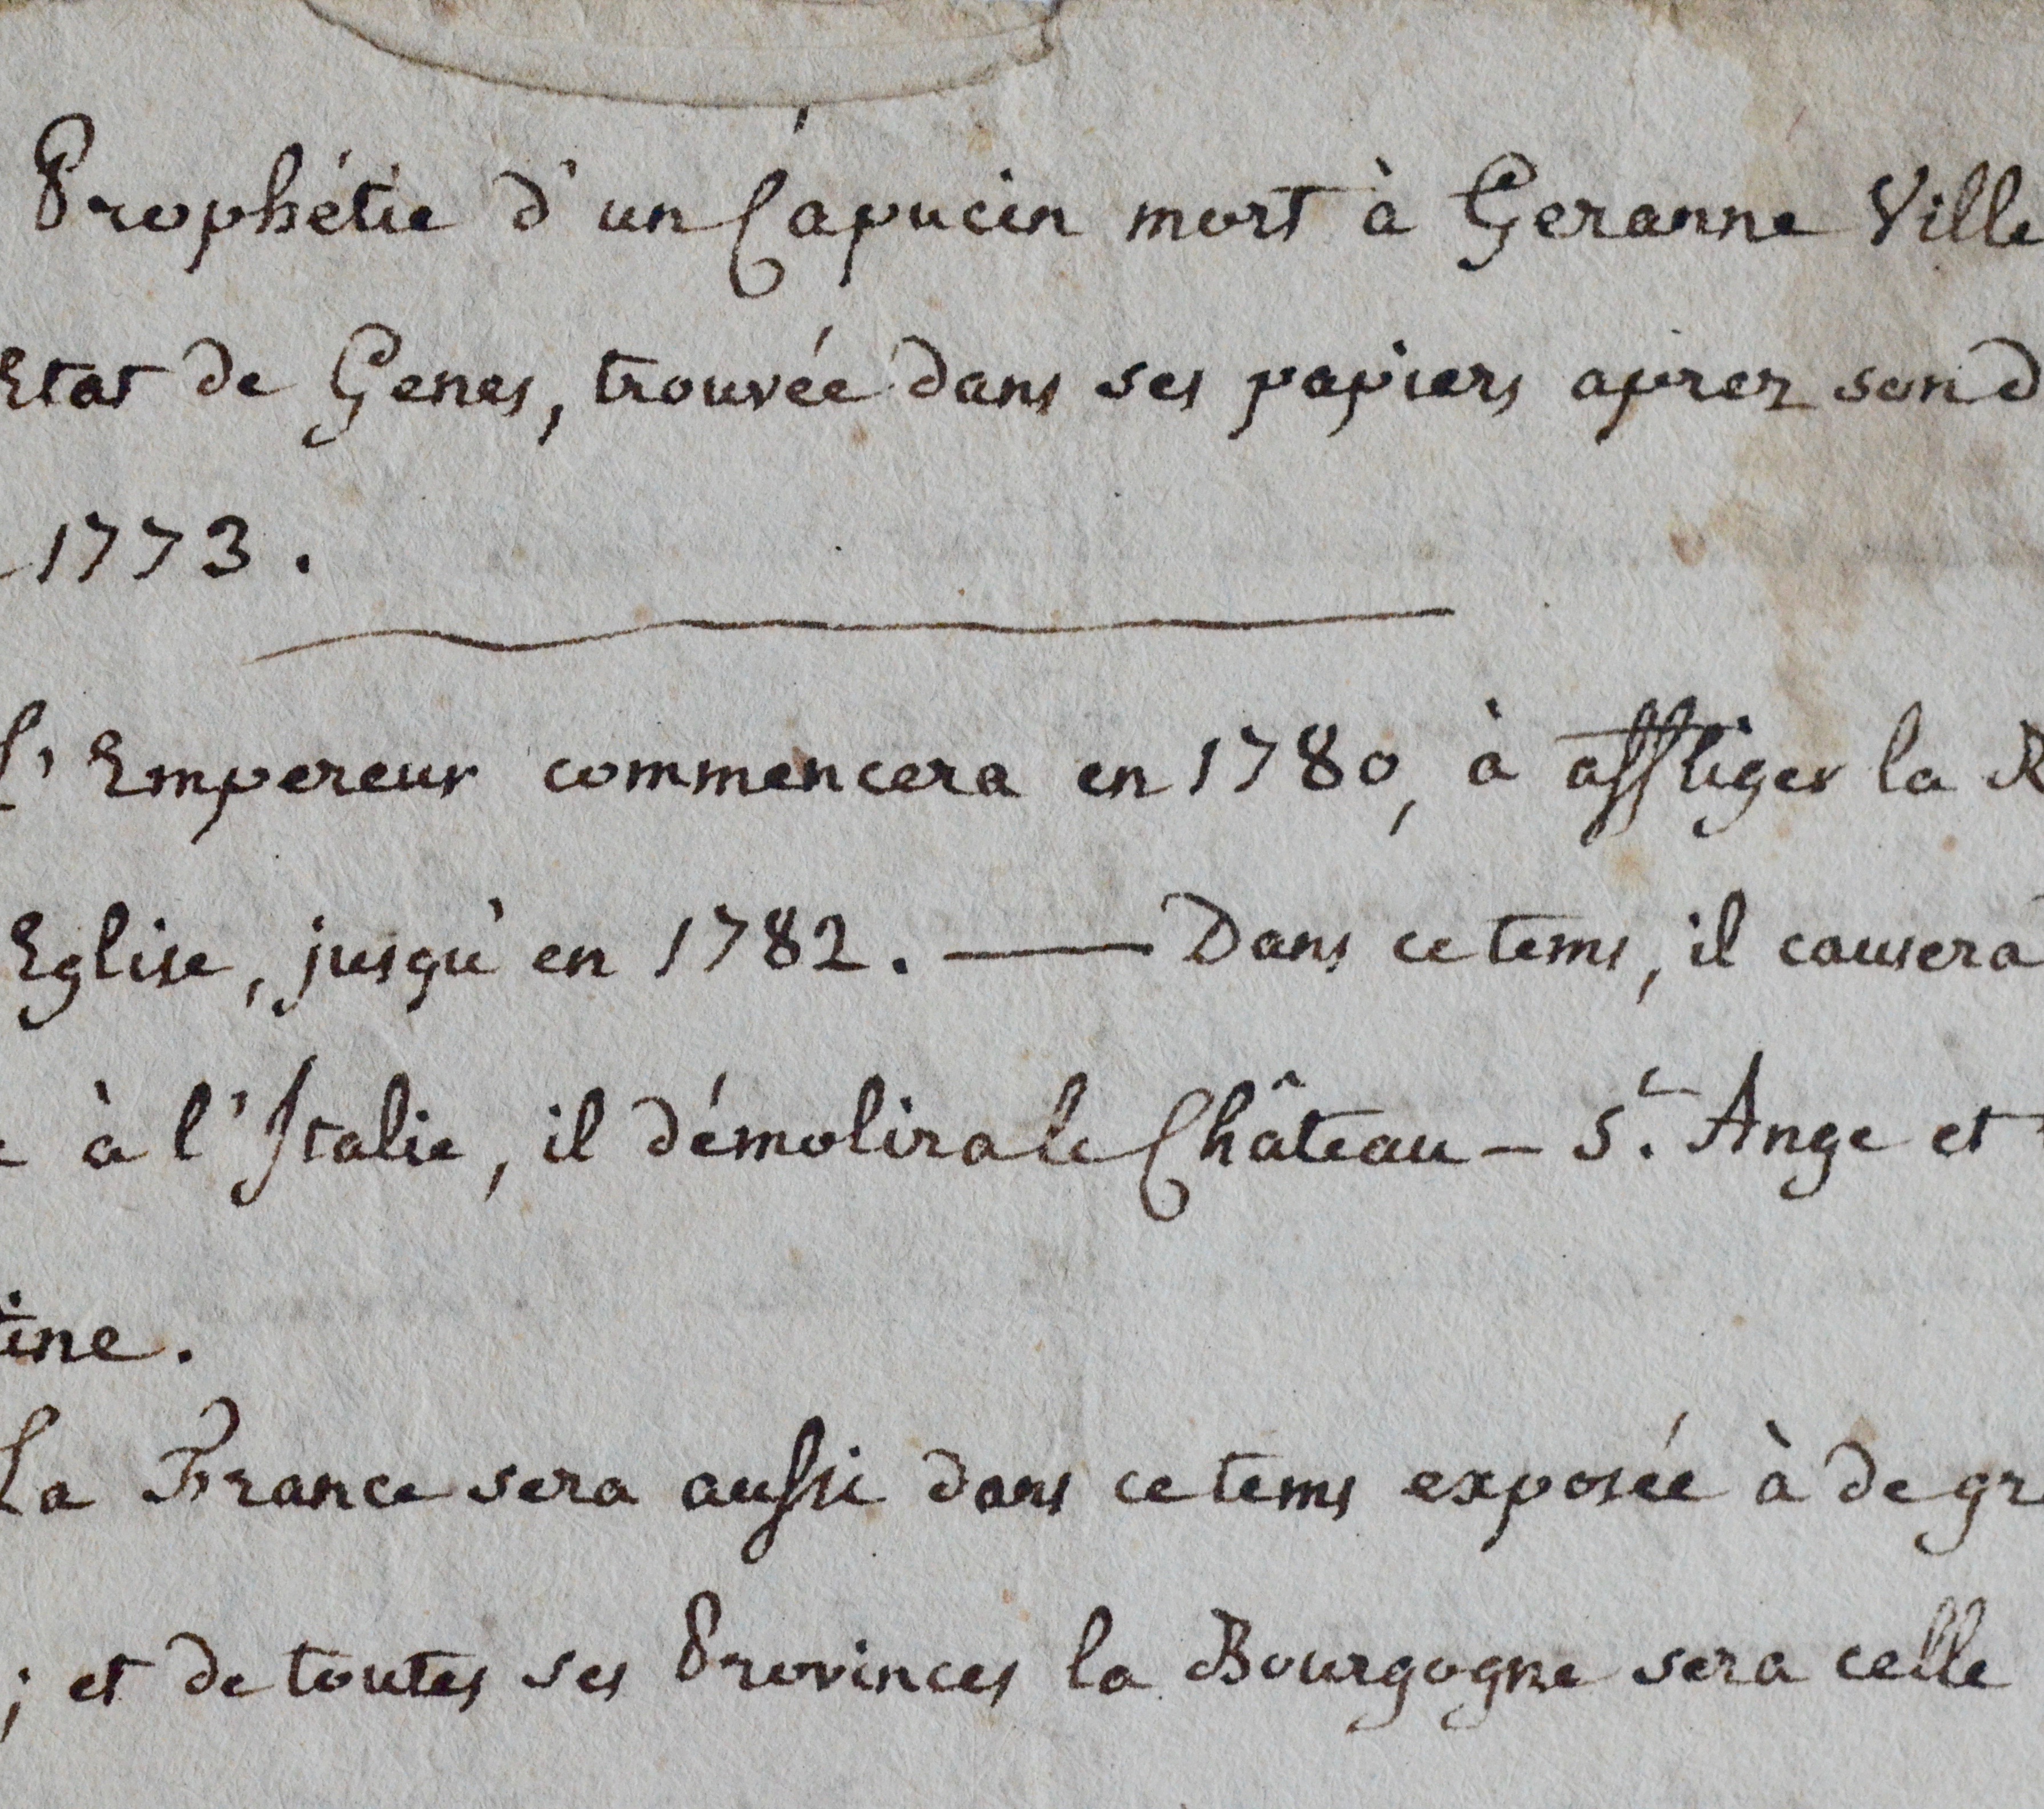 Prophétie d'un Capucin mort à Geranne Ville
Etat de Genes, trouvée dans ses papiers aprez son d
1773.
L'Empereur commencera en 1780, à affliger la R
Eglise, jusqu'en 1782. — Dans ce tems, il causera
à l'Italie, il démolira le Château - St. Ange et
ine.
La France sera aussi dans ce tems exposée à de gr
; et de toutes ses Provinces la Bourgogne sera celle